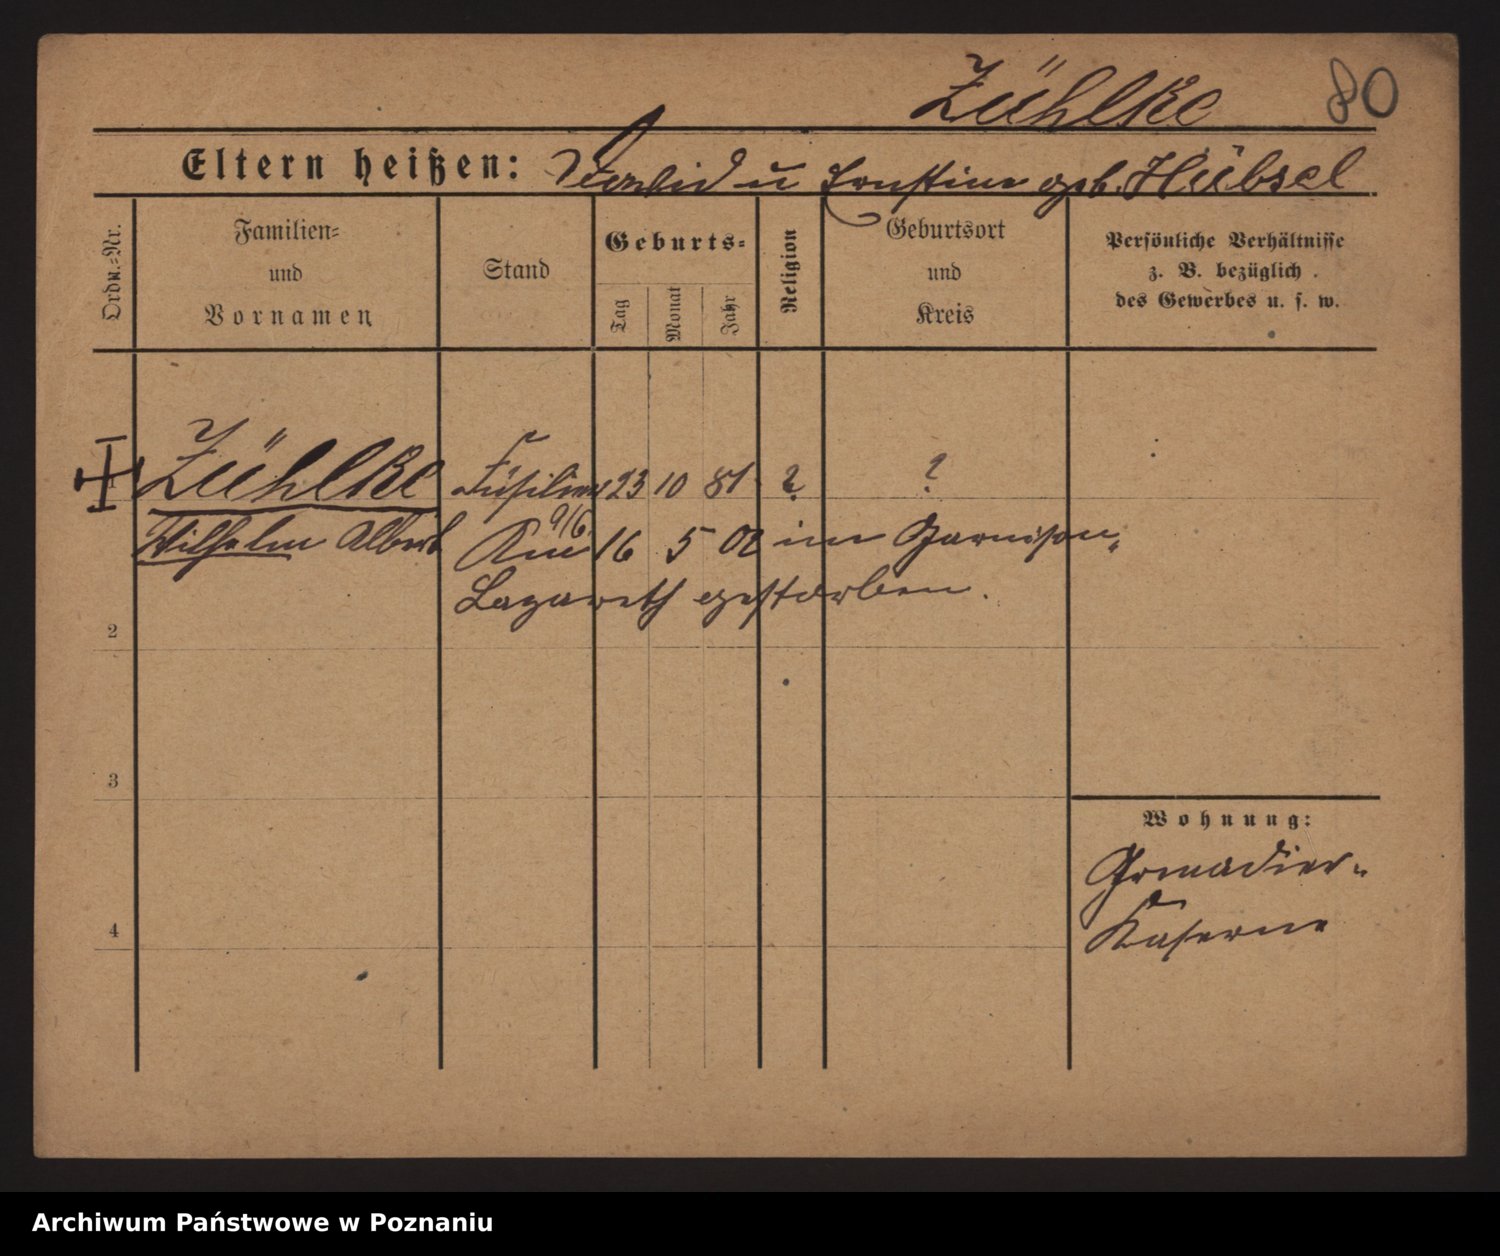 Zühlke 80
Eltern heißen: David u Ernstine geb. Hübsel
Ordn.-Nr.
Familien-
und
Vornamen
Stand
Geburts-
Tag
Monat
Jahr
Religion
Geburtsort
und
Kreis
Persönliche Verhältnisse
z. B. bezüglich
des Gewerbes u. s. w.
1 Zühlke Füsilier 23 10 81 ? ?
9/6
Wilhelm Albert Am 16 5 02 im Garnison-
Lazareth gestorben.
2
3
Wohnung:
Grenadier-
4 Kaserne
Archiwum Państwowe w Poznaniu